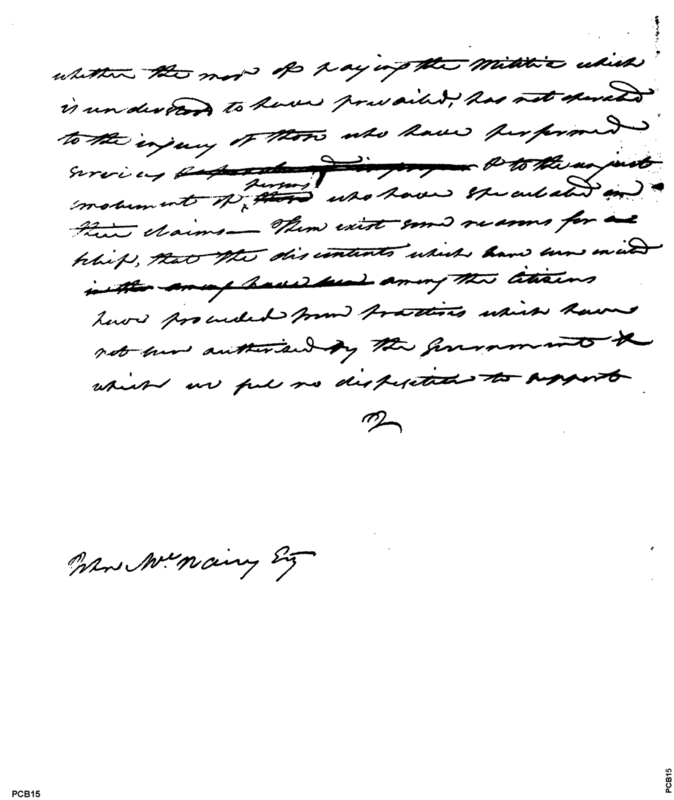 whether the mode of paying the Militia which
is understood to have prevailed, has not operated
to the injury of those who have performed
services & to the unjust
persons
emolument of those who have speculated on
their claims — There exist some reasons for a
belief, that the discontents which have been excited
in the among have been among the Citizens
have proceeded from practices which have
not been authorised by the Government &
which we feel no disposition to support
John McNairy Esq
PCB15
PCB15